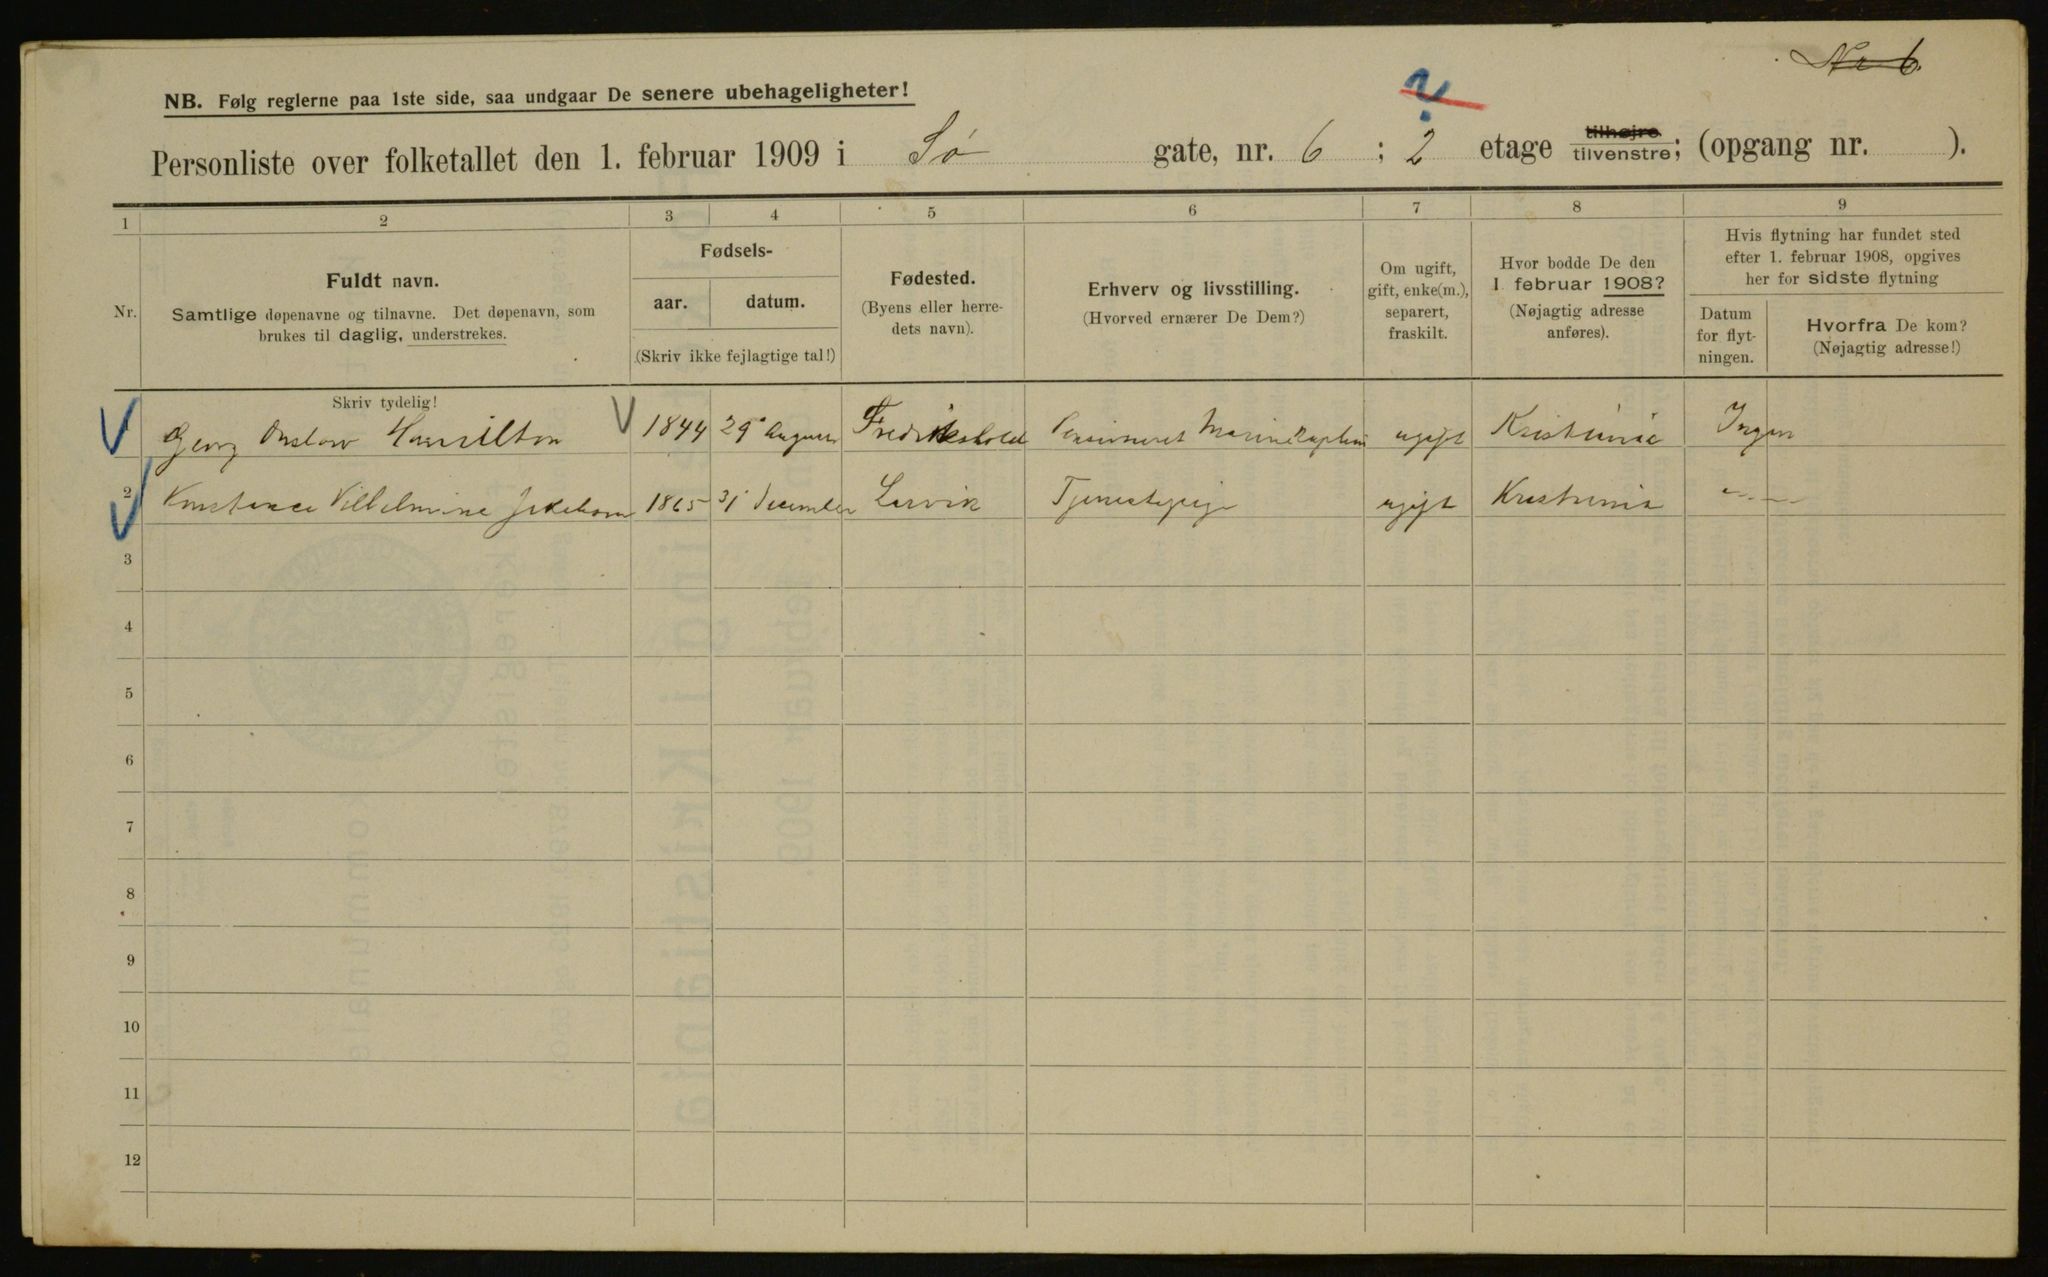 Nr 6.
NB. Følg reglerne paa 1ste side, saa undgaar De senere ubehageligheter!
Personliste over folketallet den 1. februar 1909 i Sø gate, nr. 6 ; 2 etage tilhøjre tilvenstre; (opgang nr. ).
1 2 3 4 5 6 7 8 9
Nr.
Fuldt navn.
Samtlige døpenavne og tilnavne. Det døpenavn, som
brukes til daglig, understrekes.
Skriv tydelig!
Fødsels-
aar. datum.
(Skriv ikke fejlagtige tal!)
Fødested.
(Byens eller herre-
dets navn).
Erhverv og livsstilling.
(Hvorved ernærer De Dem?)
Om ugift,
gift, enke(m.),
separert,
fraskilt.
Hvor bodde De den
1. februar 1908?
(Nøjagtig adresse
anføres).
Hvis flytning har fundet sted
efter 1. februar 1908, opgives
her for sidste flytning
Datum
for flyt-
ningen.
Hvorfra De kom?
(Nøjagtig adresse!)
Georg Onslow Hamilton 1844 29 August Fredrikshald Pensioneret Marinekaptein ugift Kristiania Ingen
2 Konstance Vilhelmine 1865 31 December Larvik Tjenestepige ugift Kristiania
3
4
5
6
7
8
9
10
11
12